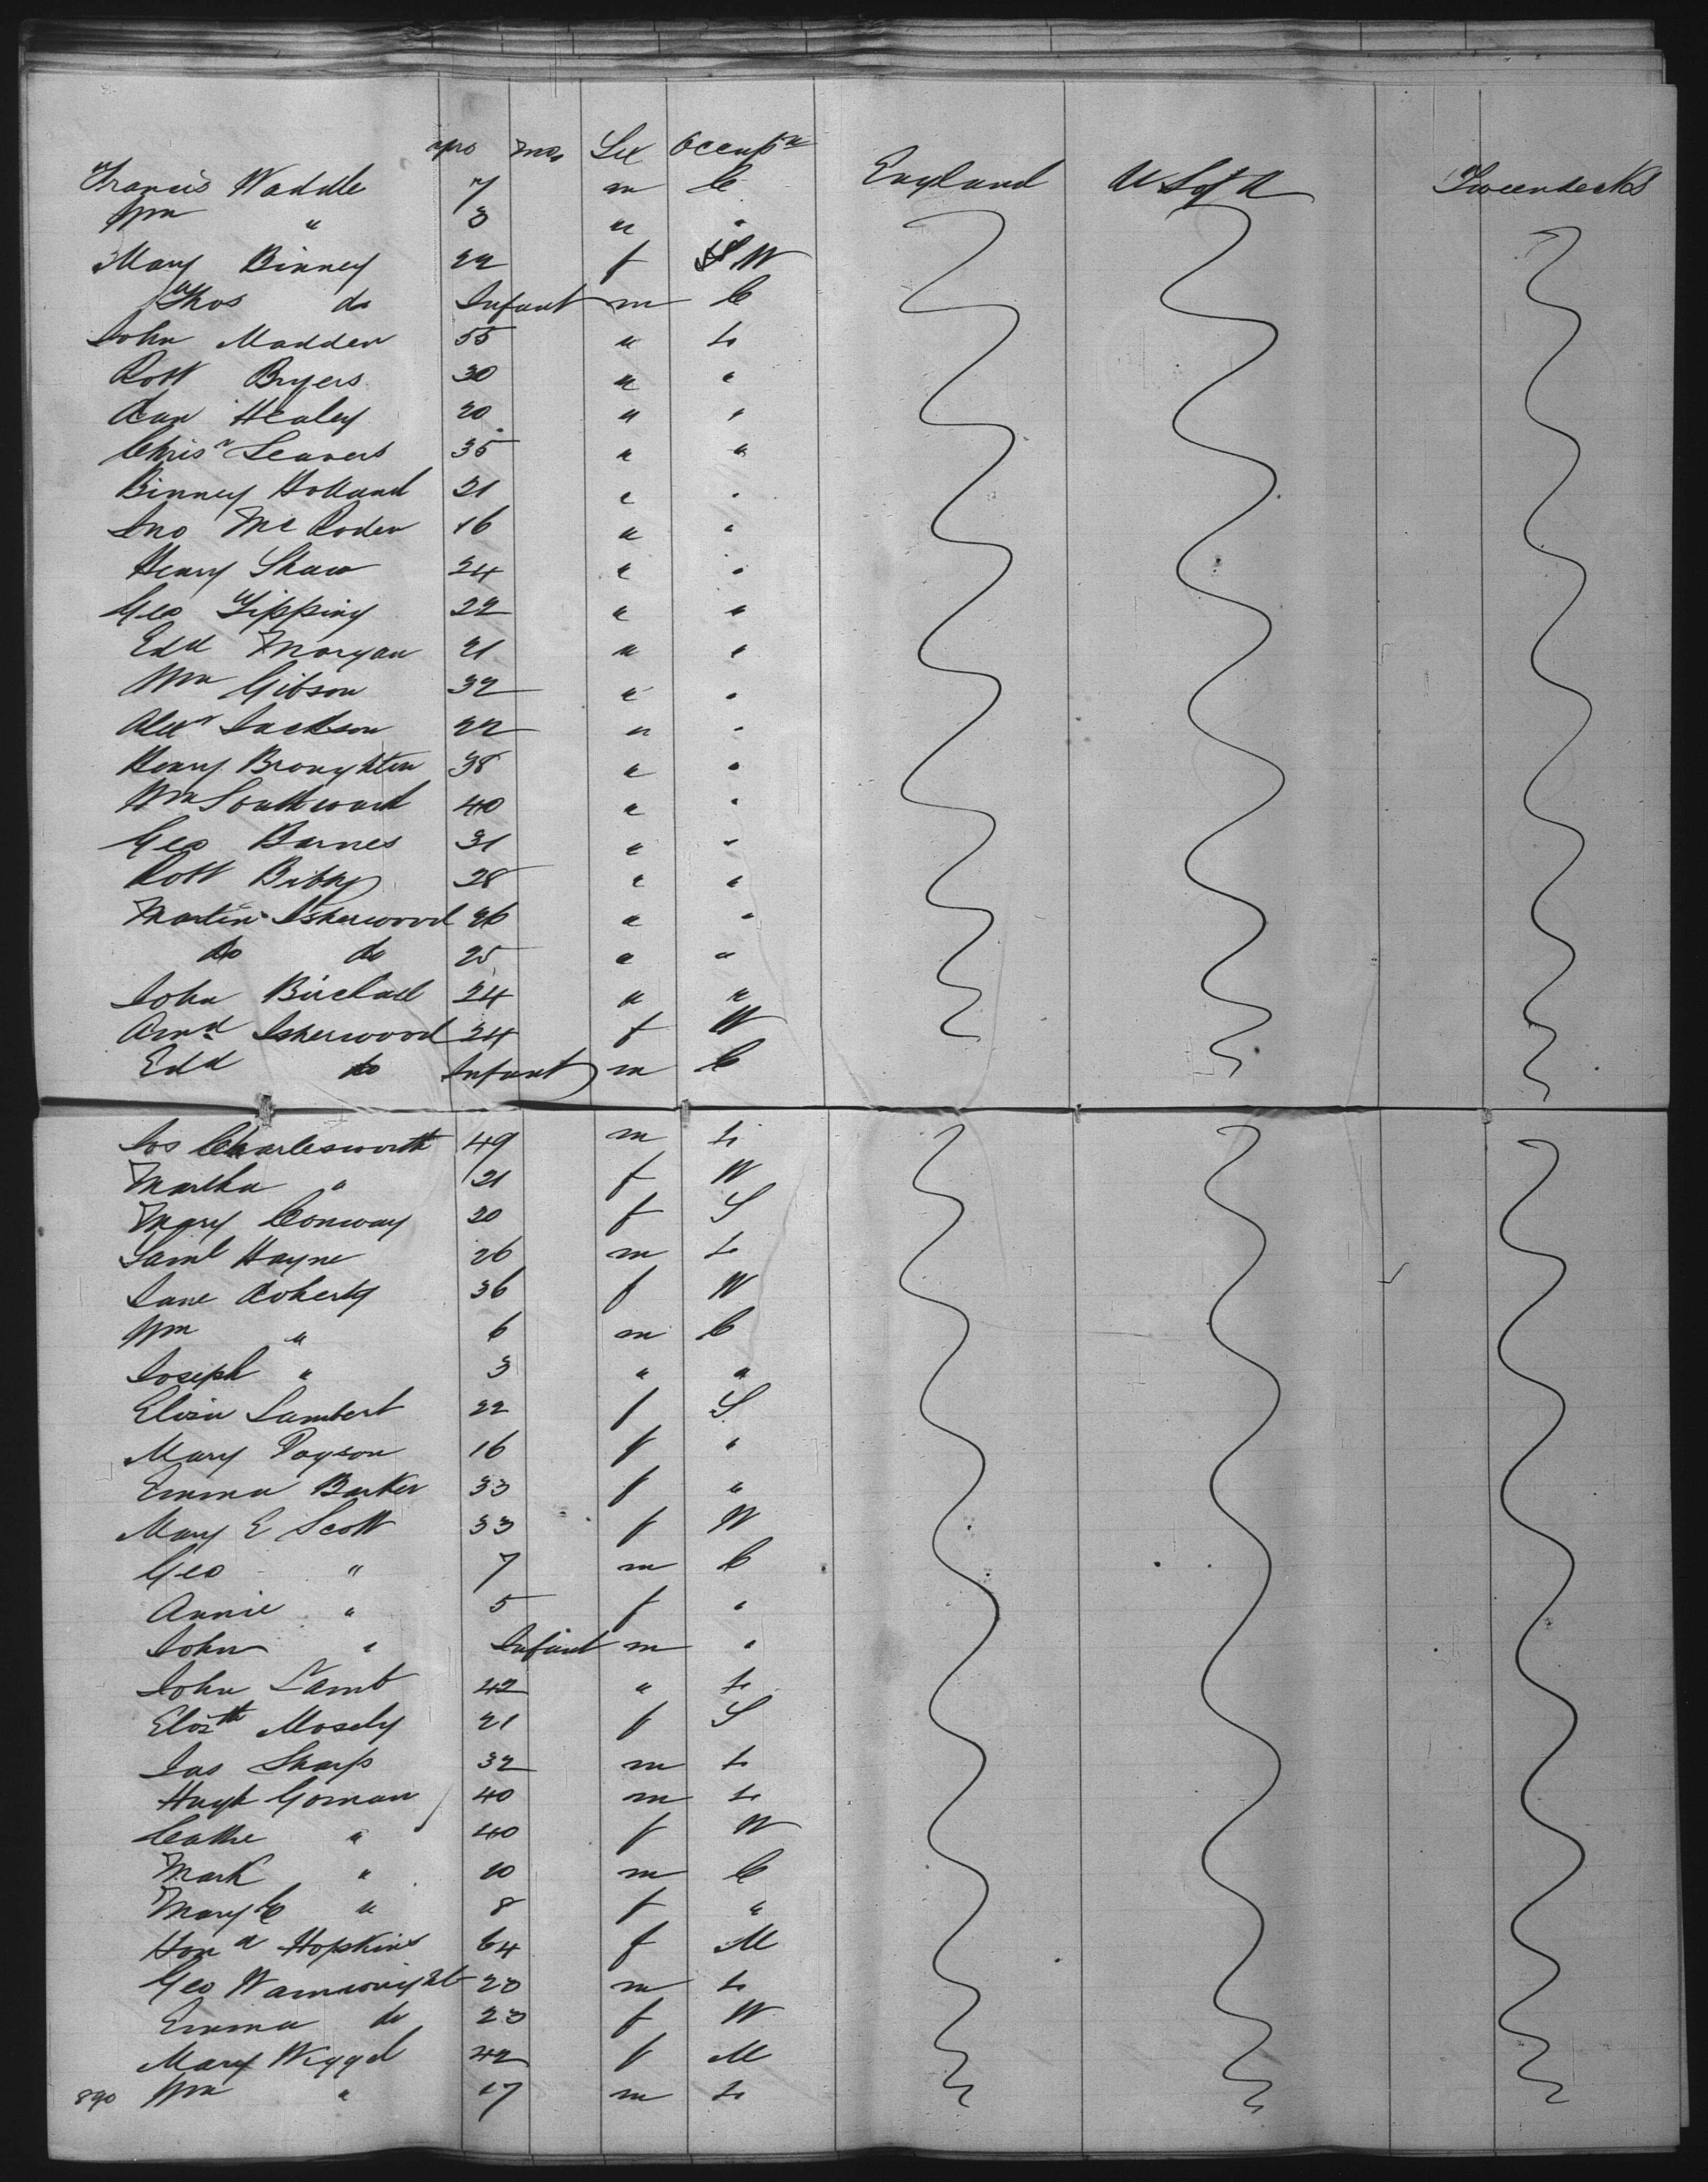 yrs mos Sex Occupn
Francis Waddle 7 m C England U S of A Tweendecks
Wm " 3 " "
Mary Binney 22 f W
Thos do Infant m C
John Madden 55 " L
Robt Bryers 30 " "
Dan Healey 20 " "
Chrisr Leavers 35 " "
Binney Holland 21 " "
Jno Mc Roden 16 " "
Henry Shaw 24 " "
Geo Tipping 22 " "
Edd Morgan 21 " "
Wm Gibson 32 " "
Alexr Jackson 22 " "
Henry Broughton 38 " "
Wm Southward 40 " "
Geo Barnes 31 " "
Robt Bibby 28 " "
Martin Isherwood 26 " "
do do 25 " "
John Birchall 24 " "
Isherwood 24 f W
Edd do Infant m C
Jos Charlesworth 49 m L
Martha " 21 f W
Mary Conway 20 f S
Saml Hayne 26 m L
Jane Doherty 36 f W
Wm " 6 m C
Joseph " 3 " "
Eliza Lambert 22 f S
Mary Pogson 16 f "
Emma Barker 33 f "
Mary E Scott 33 f W
Geo " 7 m C
Annie " 5 f "
John " Infant m "
John Lamb 42 " L
Elizth Mosely 21 f S
Jas Sharp 32 m L
Hugh Gorman 40 m L
Cathe " 40 f W
Mark " 10 m C
Mary C " 8 f "
Honа Hopkins 64 f M
Geo Wainwright 23 m L
Emma do 23 f W
Mary Wiggel 42 f M
890 Wm " 17 m L